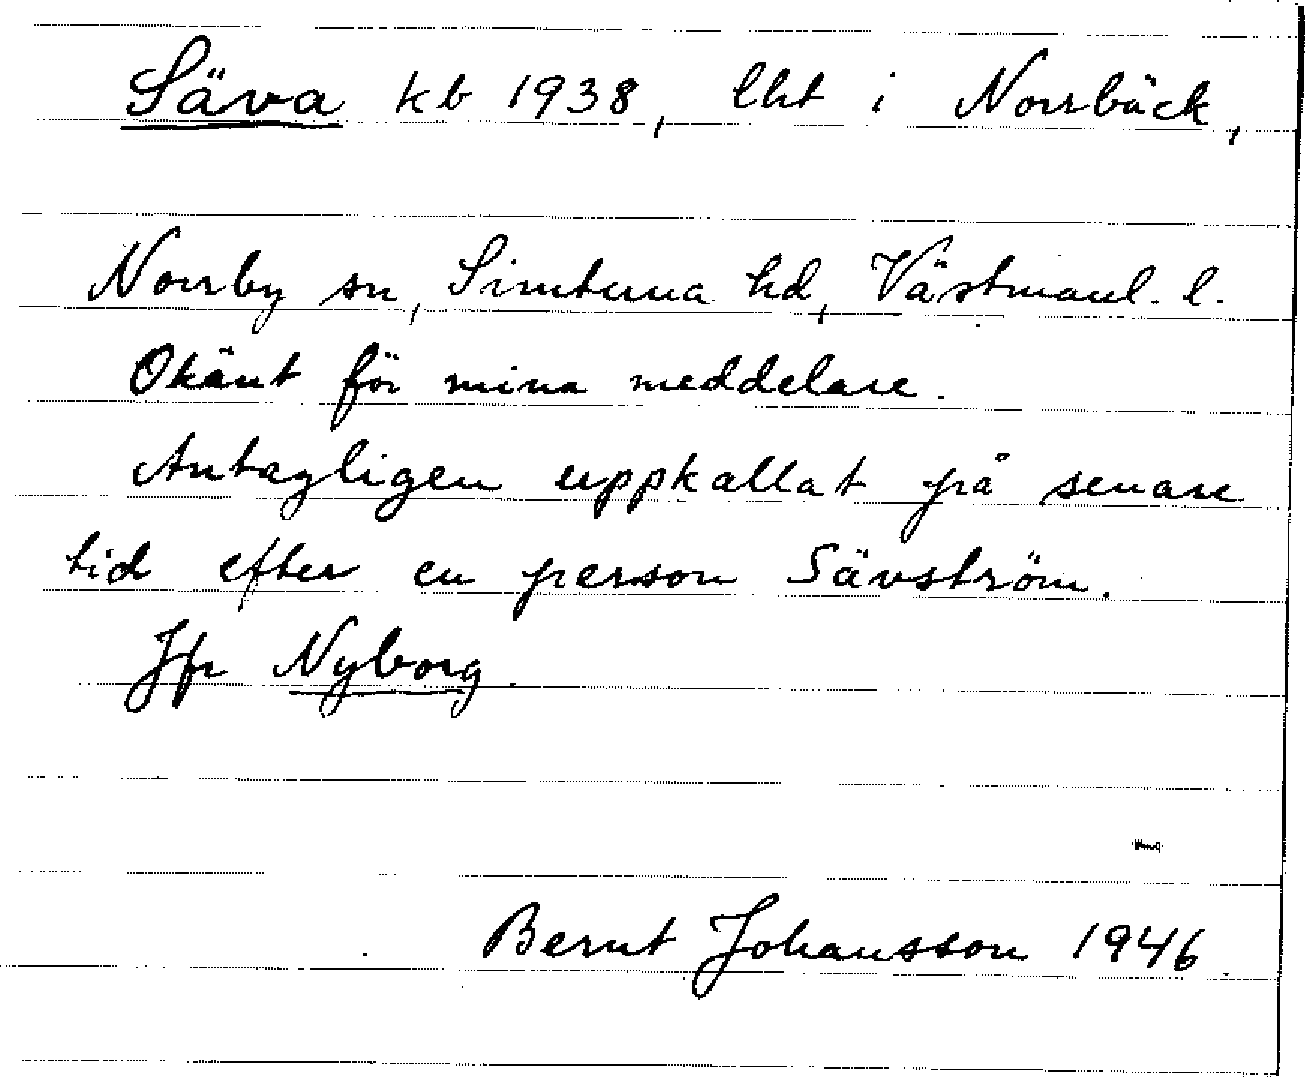 Säva kb 1938, lht i Norrbäck,
Norrby sn, Simtuna hd, Västmanl. l.
Okänt för mina meddelare.
Antagligen uppkallat på senare
tid efter en person Sävström.
Jfr Nyborg.
Bernt Johansson 1946